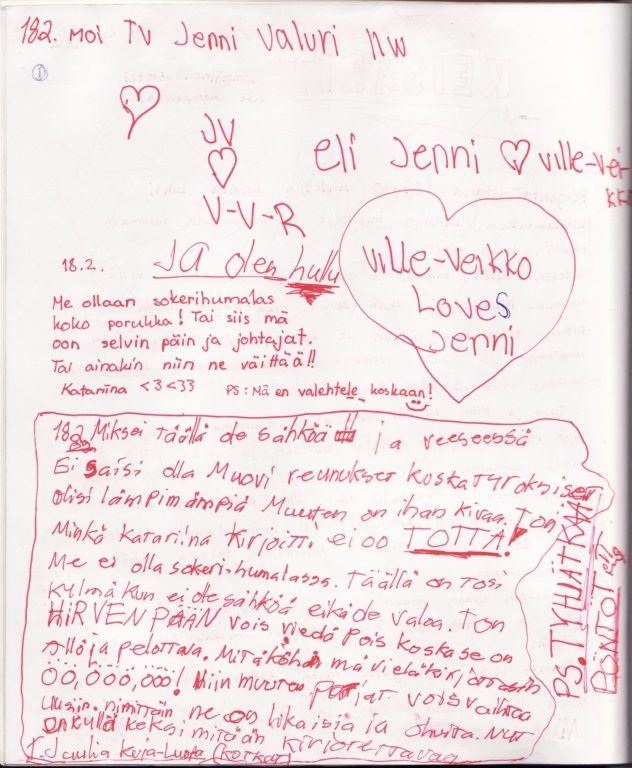 182. Moi TV Jenni Valuri NW
①
JV
♡
V-V-R
eli Jenni ♡ ville-vei-
kko
JA olen hullu
ville-veikko
LoveS
Jenni
18.2.
Me ollaan sokerihumalas
koko porukka! Tai siis mä
oon selvin päin ja johtajat.
Tai ainakin niin ne väittää!!
Katariina <3<33 PS: Mä en valehtele koskaan!
182 Miksei täällä ole sähköä!!! ja veeseessä
Ei saisi olla Muovi reunukset koska
olisi lämpimämpiä Muuten on ihan kivaa. Toi
Minkä katariina kirjoitti ei oo TOTTA!
Me ei olla sokeri-humalassa. Täällä on tosi
kylmä kun ei ole sähköä eikä ole valoa. Ton
HIRVENPÄÄN vois viedä pois koska se on
ällö ja pelottava. Mitäköhän mä vielä kirjottasin
ÖÖ,ÖÖÖ,ÖÖÖ! Niin muuten patjat vois vaihtaa
uusiin nimittäin ne on likaisia ja ohuita. Nyt
on kyllä keksi mitään kirjotettavaa
Jaulia Kuja-Luota (KOTKAT)
PS. TYHJÄTKÄÄ
PÖNTÖT